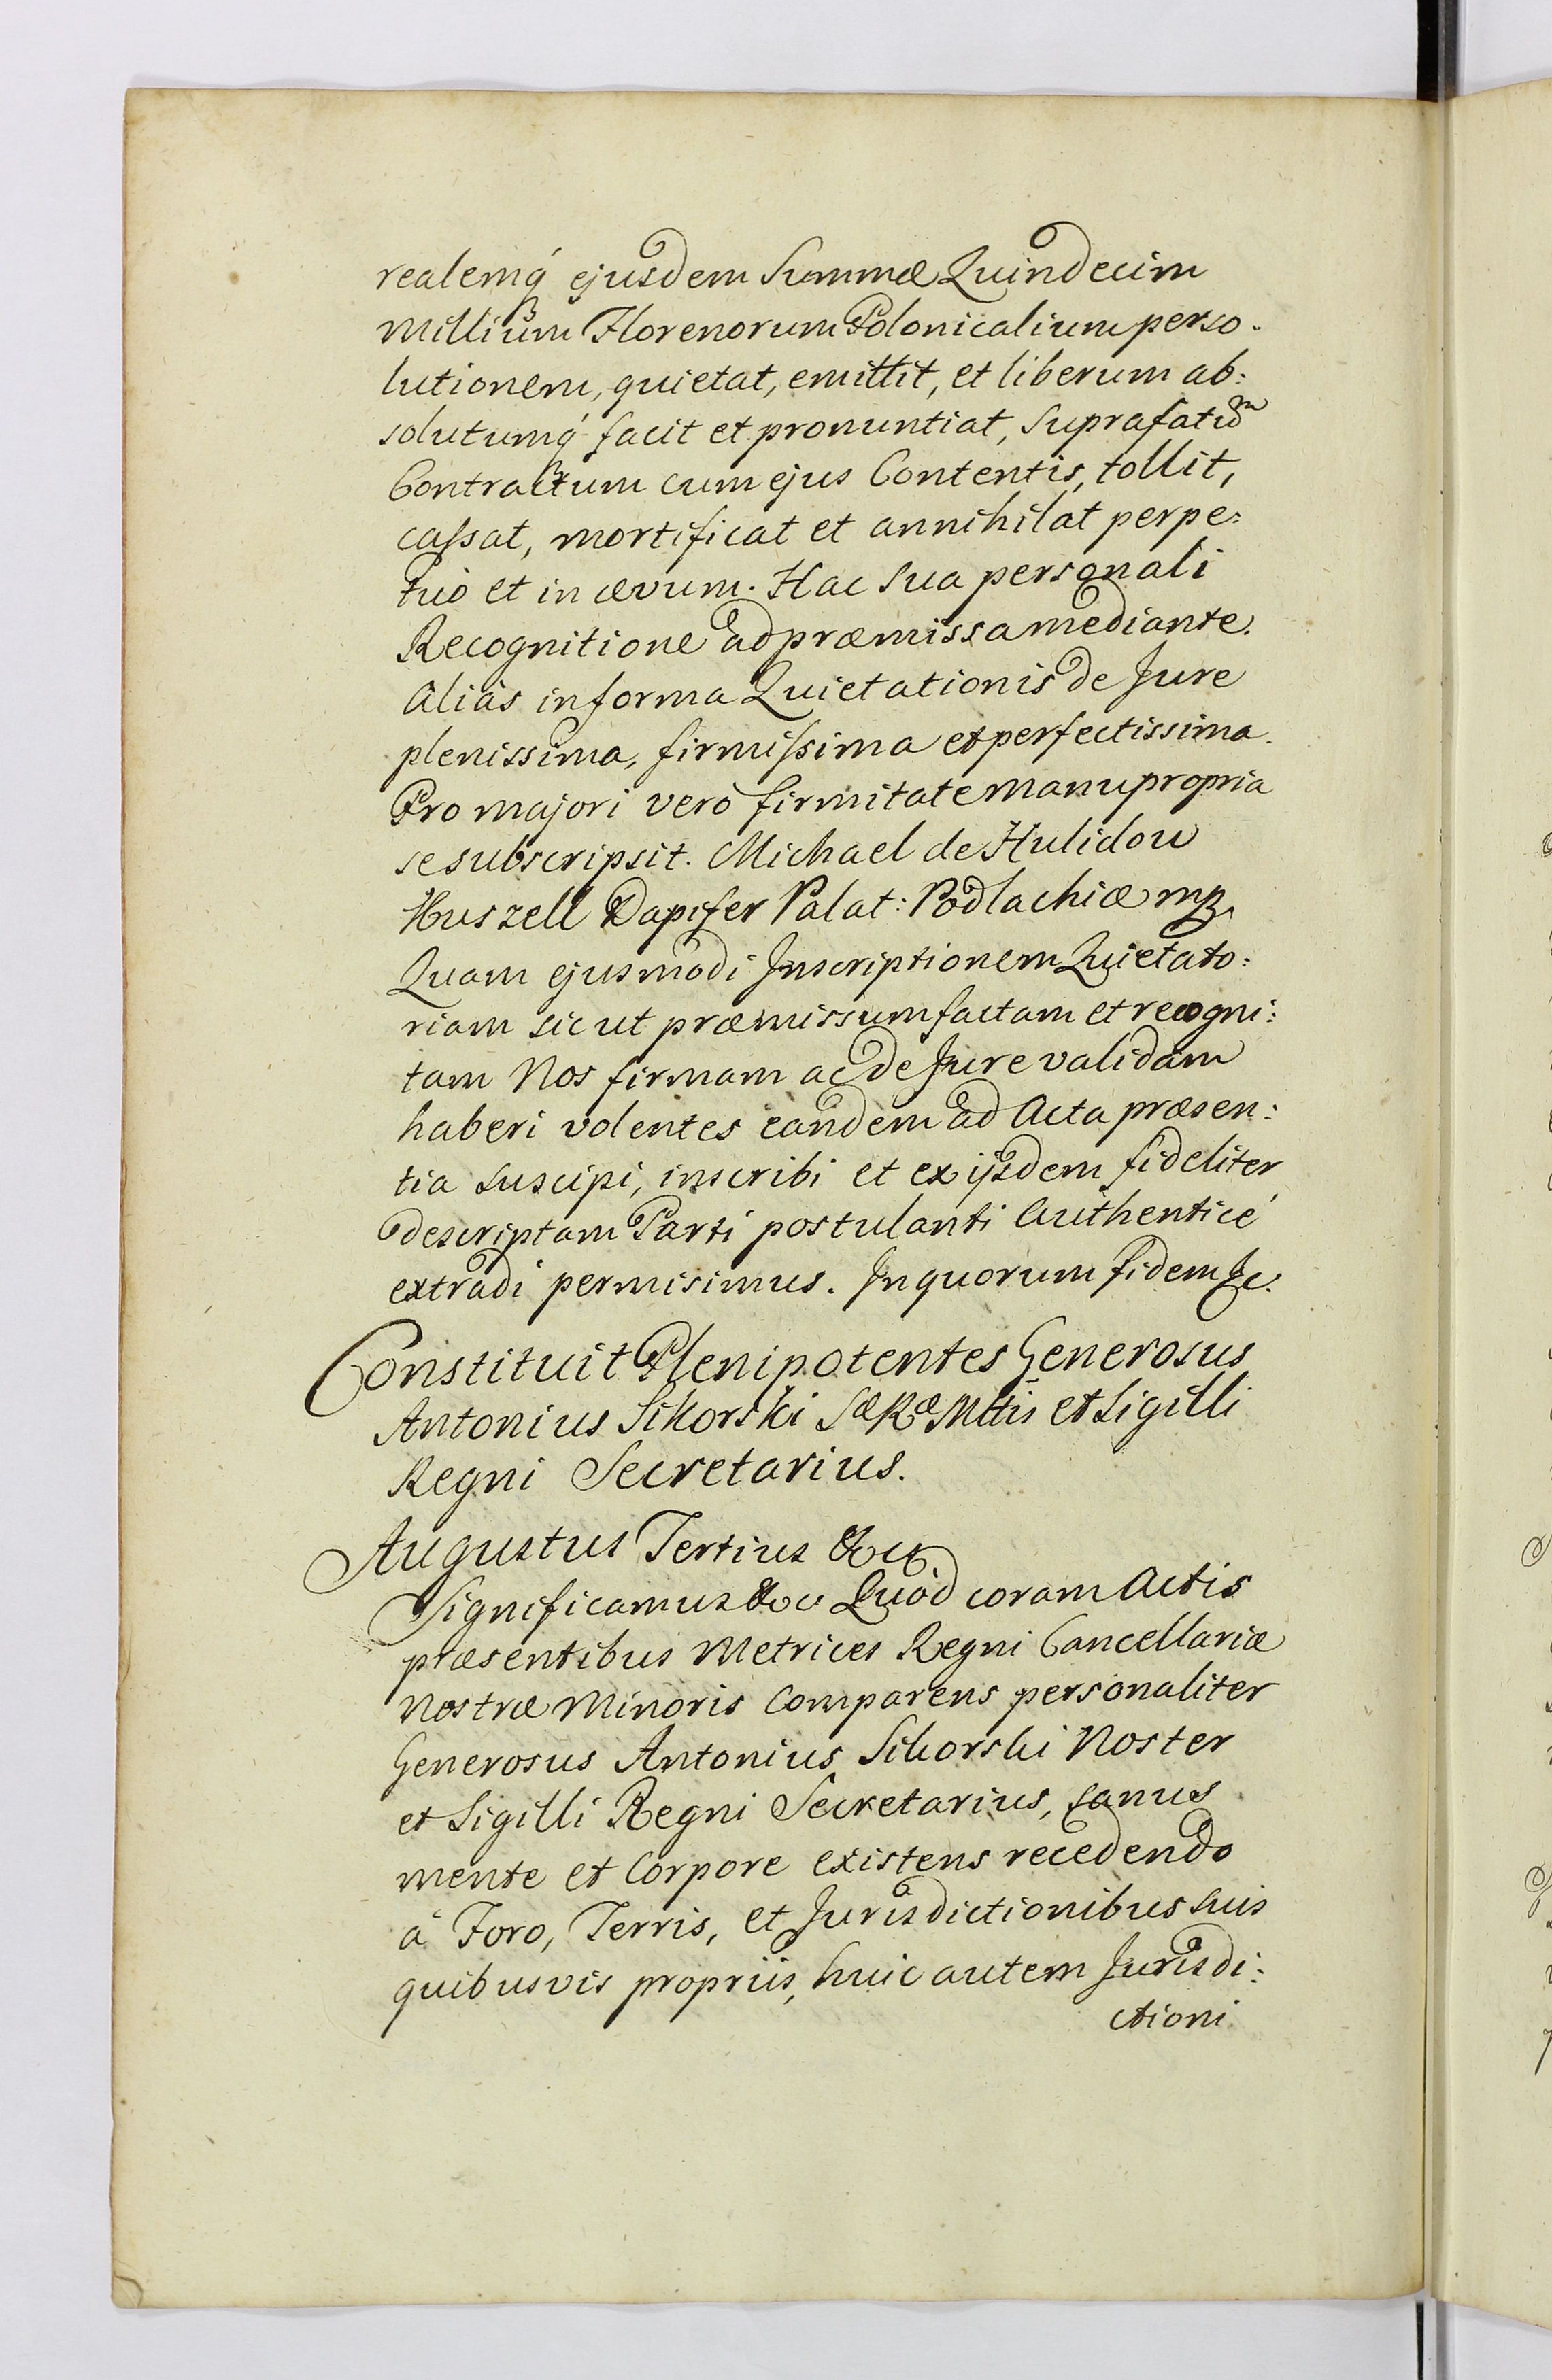 realemq́ ejusdem Summæ Quindecim
Millium Florenorum Polonicalium perso-
lutionem, quietat, emittit, et liberum ab:
solutumq́ facit et pronuntiat, Suprafatũm
Contractum cum ejus Contentis, tollit,
cassat, mortificat et annihilat perpe:
tuò et in ævum. Hac Sua personali
Recognitione ad præmissa mediante.
Aliàs in forma Quietationis de Jure
plenissima, firmissima et perfectissima.
Pro majori verò firmitate Manu propria
se subscripsit. Michael de Hulidow
Huszell Dapifer Palat: Podlachiæ mp.
Quam ejusmodi Inscriptionem Quietato:
riam sicut præmissum factam et recogni:
tam Nos firmam ac de Jure validam
haberi volentes eandem ad Acta præsen:
tia suscipi, inscribi et ex ijsdem fideliter
descriptam Parti postulanti Authenticé
extradi permisimus. In quorum fidem &c.
Constituit Plenipotentes Generosus
Antonius Sikorski Sæ Ræ Mttis et Sigilli
Regni Secretarius.
Augustus Tertius &c
Significamus &c Quòd coram Actis
præsentibus Metrices Regni Cancellariæ
Nostræ Minoris Comparens personaliter
Generosus Antonius Sikorski Noster
et Sigilli Regni Secretarius, sanus
mente et Corpore existens recedendo
à Foro, Terris, et Jurisdictionibus suis
quibusvis propriis, huic autem Jurisdi:
ctioni